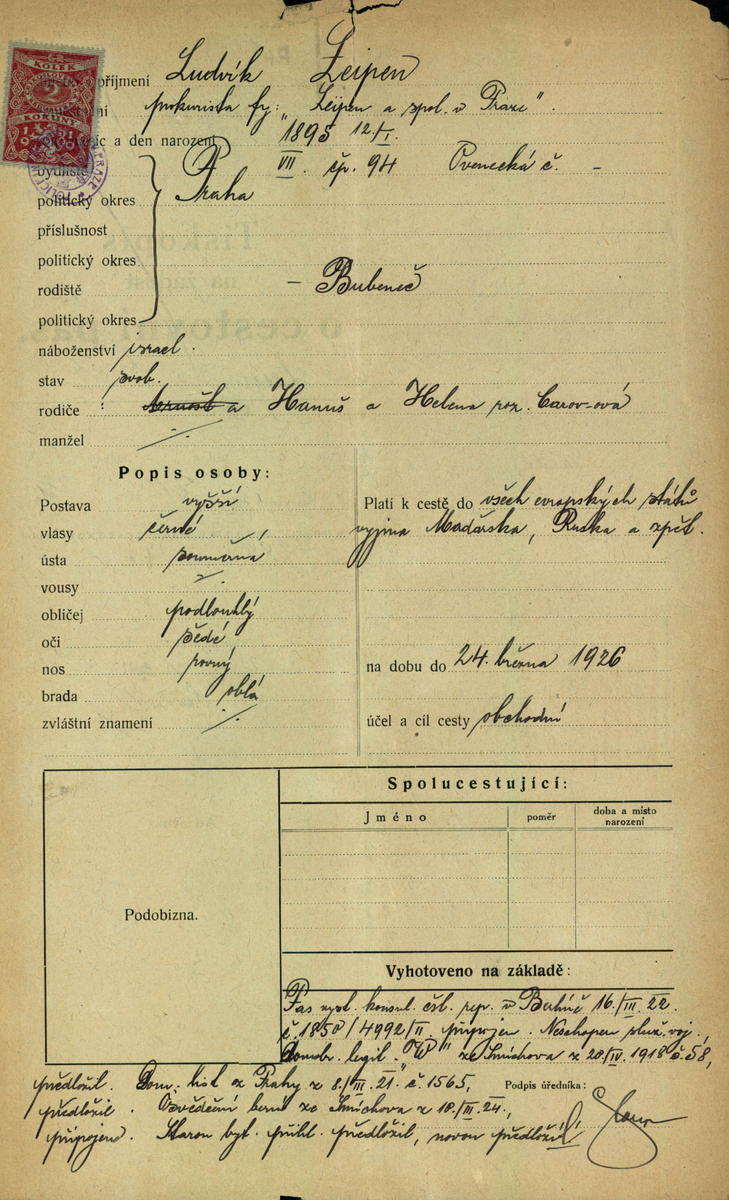 KOLEK
2
KORUNY
1919
příjmení Ludvík Leipen
prokurista fy: „Leipen a spol. v Praze".
a den narození 1895 12./I.
bydliště VII. čp. 94 Ovenecká č. –
politický okres Praha
příslušnost
politický okres
rodiště – Bubeneč
politický okres
náboženství israel.
stav svob.
rodiče : Arnošt a Hanuš a Helena roz. Carov-ová
manžel ./.
Popis osoby:
Postava vyšší
vlasy černé
ústa souměrná
vousy ./.
obličej podlouhlý
oči šedé
nos rovný
brada oblá
zvláštní znamení ./.
Platí k cestě do všech evropských států
vyjma Maďarska, Ruska a zpět.
na dobu do 24. března 1926
účel a cíl cesty obchodní
Podobizna.
Spolucestující:
Jméno poměr doba a místo narození
Vyhotoveno na základě:
Pas vyst. konsul. čsl. rep. v Berlíně 16./III. 22.
č. 1850/4992/II. připojen. Neschopen služ. voj.
Domobr. legit. „W" ze Smíchova z 20/IV. 1918 č. 58,
předložil. Dom. list z Prahy z 8./III. 21." č. 1565,
Podpis úředníka:
předložil. Osvědčení berní ze Smíchova z 18./III. 24.,
připojeno. Starou byt. přihl. předložil, novou předloží!